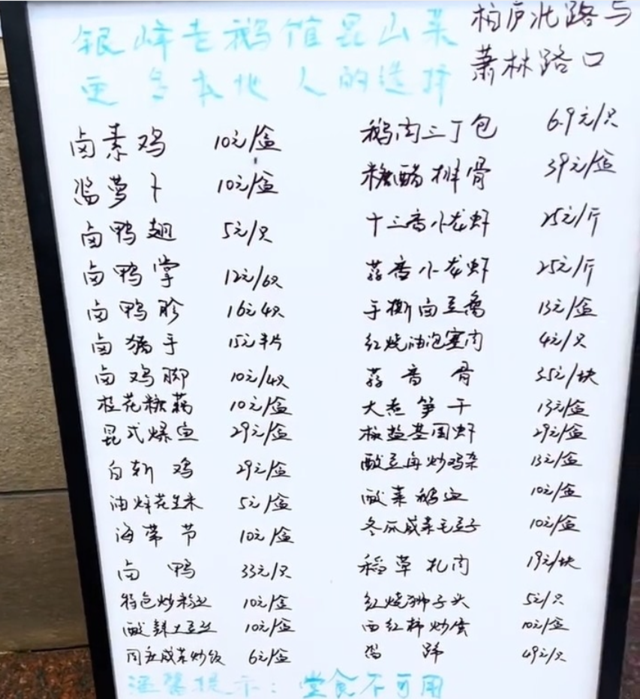 银峰老鹅馆昆山菜
更多本地人的选择
柏庐北路与
萧林路口
卤素鸡 10元/盒
酱萝卜 10元/盒
卤鸭翅 5元/只
卤鸭掌 12元/6只
卤鸭胗 16元4只
卤猪手 15元半片
卤鸡脚 10元/4只
桂花糖藕 10元/盒
昆式爆鱼 29元/盒
白斩鸡 29元/盒
油炸花生米 5元/盒
海带节 10元/盒
卤鸭 33元/只
特色炒粉丝 10元/盒
酸辣土豆丝 10元/盒
周庄咸菜炒饭 6元/盒
鹅肉三丁包 6.9元/只
糖醋排骨 39元/盒
十三香小龙虾 25元/斤
蒜香小龙虾 25元/斤
手撕卤豆腐 13元/盒
红烧油泡塞肉 4元/只
蒜香骨 35元/块
大煮笋干 13元/盒
椒盐基围虾 29元/盒
酸豆角炒鸡杂 13元/盒
酸菜鹅血 10元/盒
冬瓜咸菜毛豆子 10元/盒
稻草扎肉 19元/块
红烧狮子头 5元/只
西红柿炒蛋 10元/盒
蹄 49元/只
温馨提示:堂食不可用